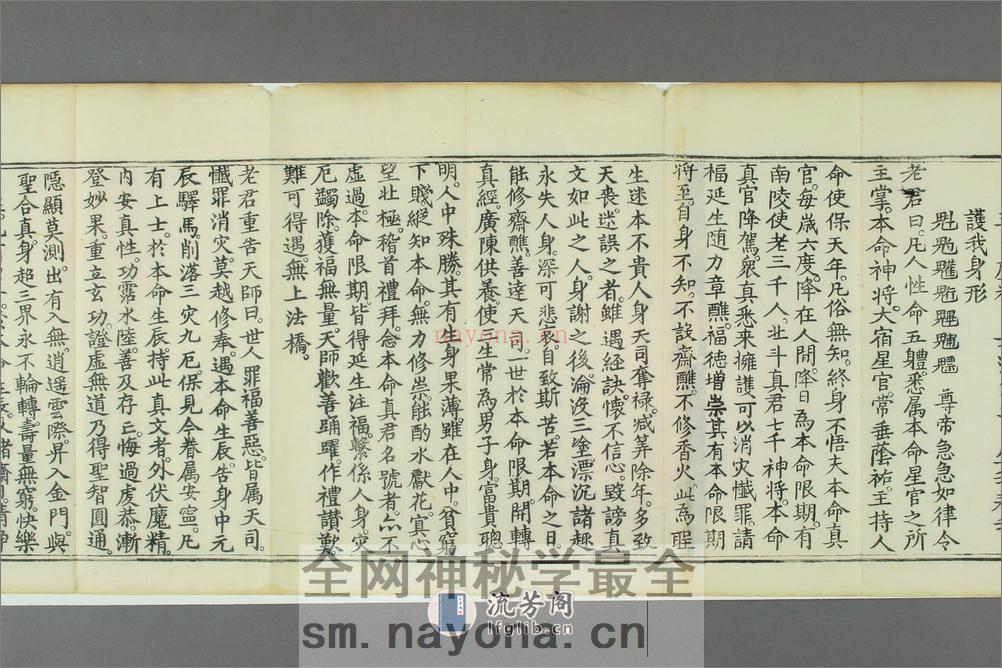 護我身形
魁𩲃䰢魓𩵄䰨魒 尊帝急急如律令
老君曰凡人性命五體悉属本命星官之所
主掌本命神將大宿星官常垂蔭祐主持人
命使保天年凡俗無知終身不悟夫本命真
官每歲六度降在人間降日為本命限期有
南陵使者三千人北斗真君七千神將本命
真官降駕衆真悉來擁護可以消灾懺罪請
福延生随力章醮福德増崇其有本命限期
將至自身不知不設齋醮不修香火此為輕
生迷本不貴人身天司奪禄減筭除年多致
天丧迷誤之者雖遇經訣懷不信心毀謗真
文如此之人身謝之後淪没三塗漂沉諸趣
永失人身深可悲哀自致斯苦若本命之日
能修齋醮善達天司一世於本命限期開轉
真經廣陳供養使三生常為男子身富貴聦
明人中殊勝其有生身果薄雖在人中貧窮
下賤縦知本命無力修崇能酌水獻花冥心
望北極稽首禮拜念本命真君名號者亦不
虚過本命限期皆得延生注福繫係人身灾
厄蠲除獲福無量天師歡善踊躍作禮讃歎
難可得遇無上法橋
老君重告天師曰世人罪福善惡皆属天司
懺罪消灾莫越修奉遇本命生辰告身中元
辰驛馬削落三灾九厄保見今眷属安寧凡
有上士於本命生辰持此真文者外伏魔精
内安真性功霑水陸善及存亡悔過虔恭漸
登妙果重立玄功證虚無道乃得聖智圓通
隱顯莫測出有入無逍遥雲際昇入金門與
聖合真身超三界永不輪轉壽量無窮快樂
nayona.cn
全网神秘学最全
流芳阁
lfglib.cn
sm.nayona.cn